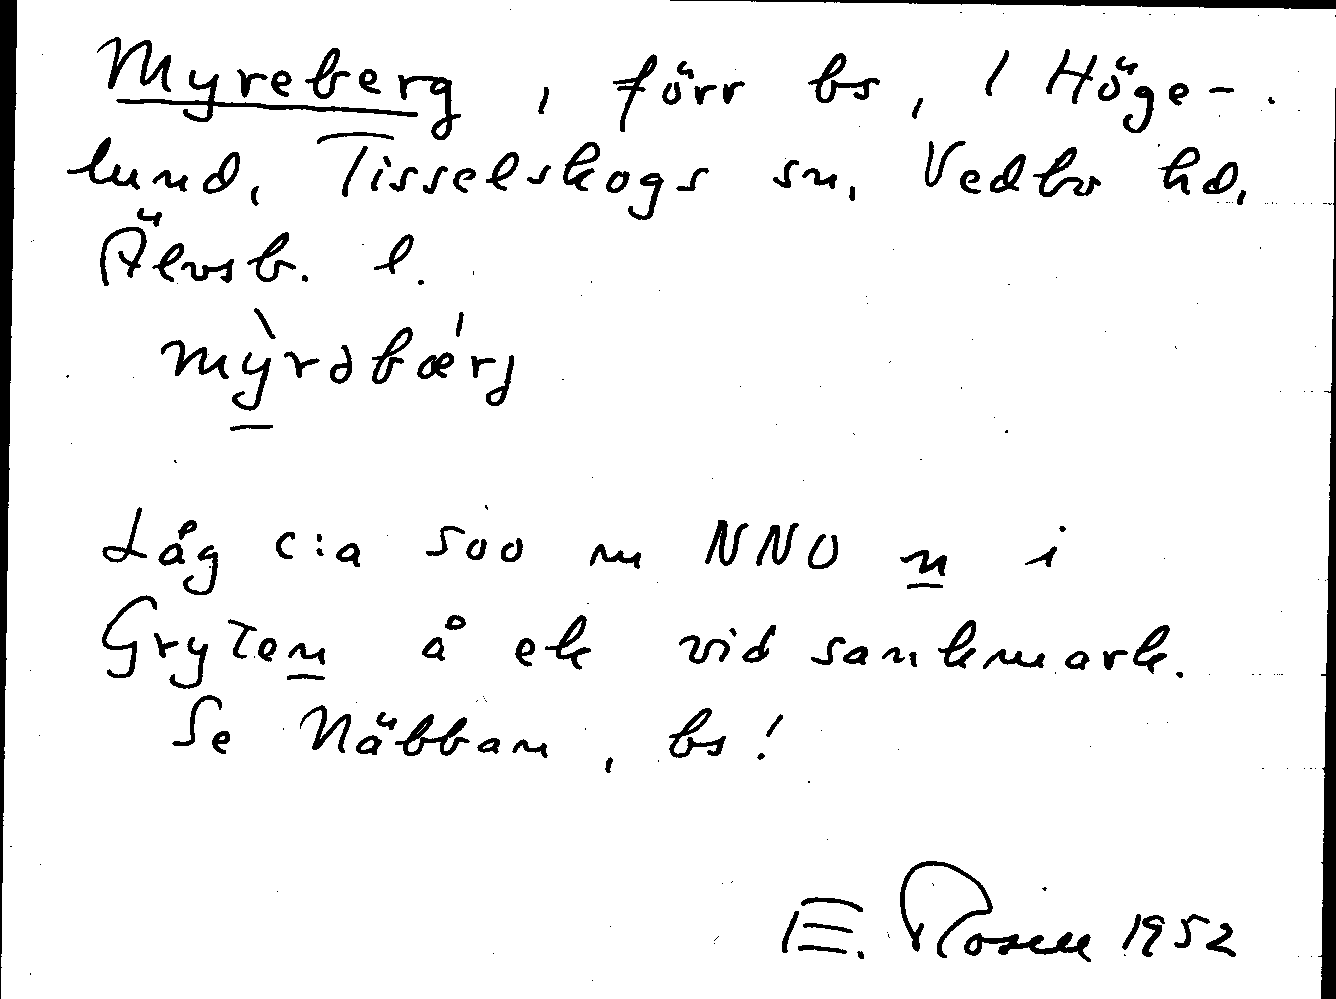 Myreberg, förr bs, 1 Höge-
lund, Tisselskogs sn, Vedbo hd,
Älvsb. l.
mỳrəbǽrj
Låg c:a 500 m NNO n i
Gryten å ek vid sankmark.
Se Näbban, bs!
E. Rosell 1952